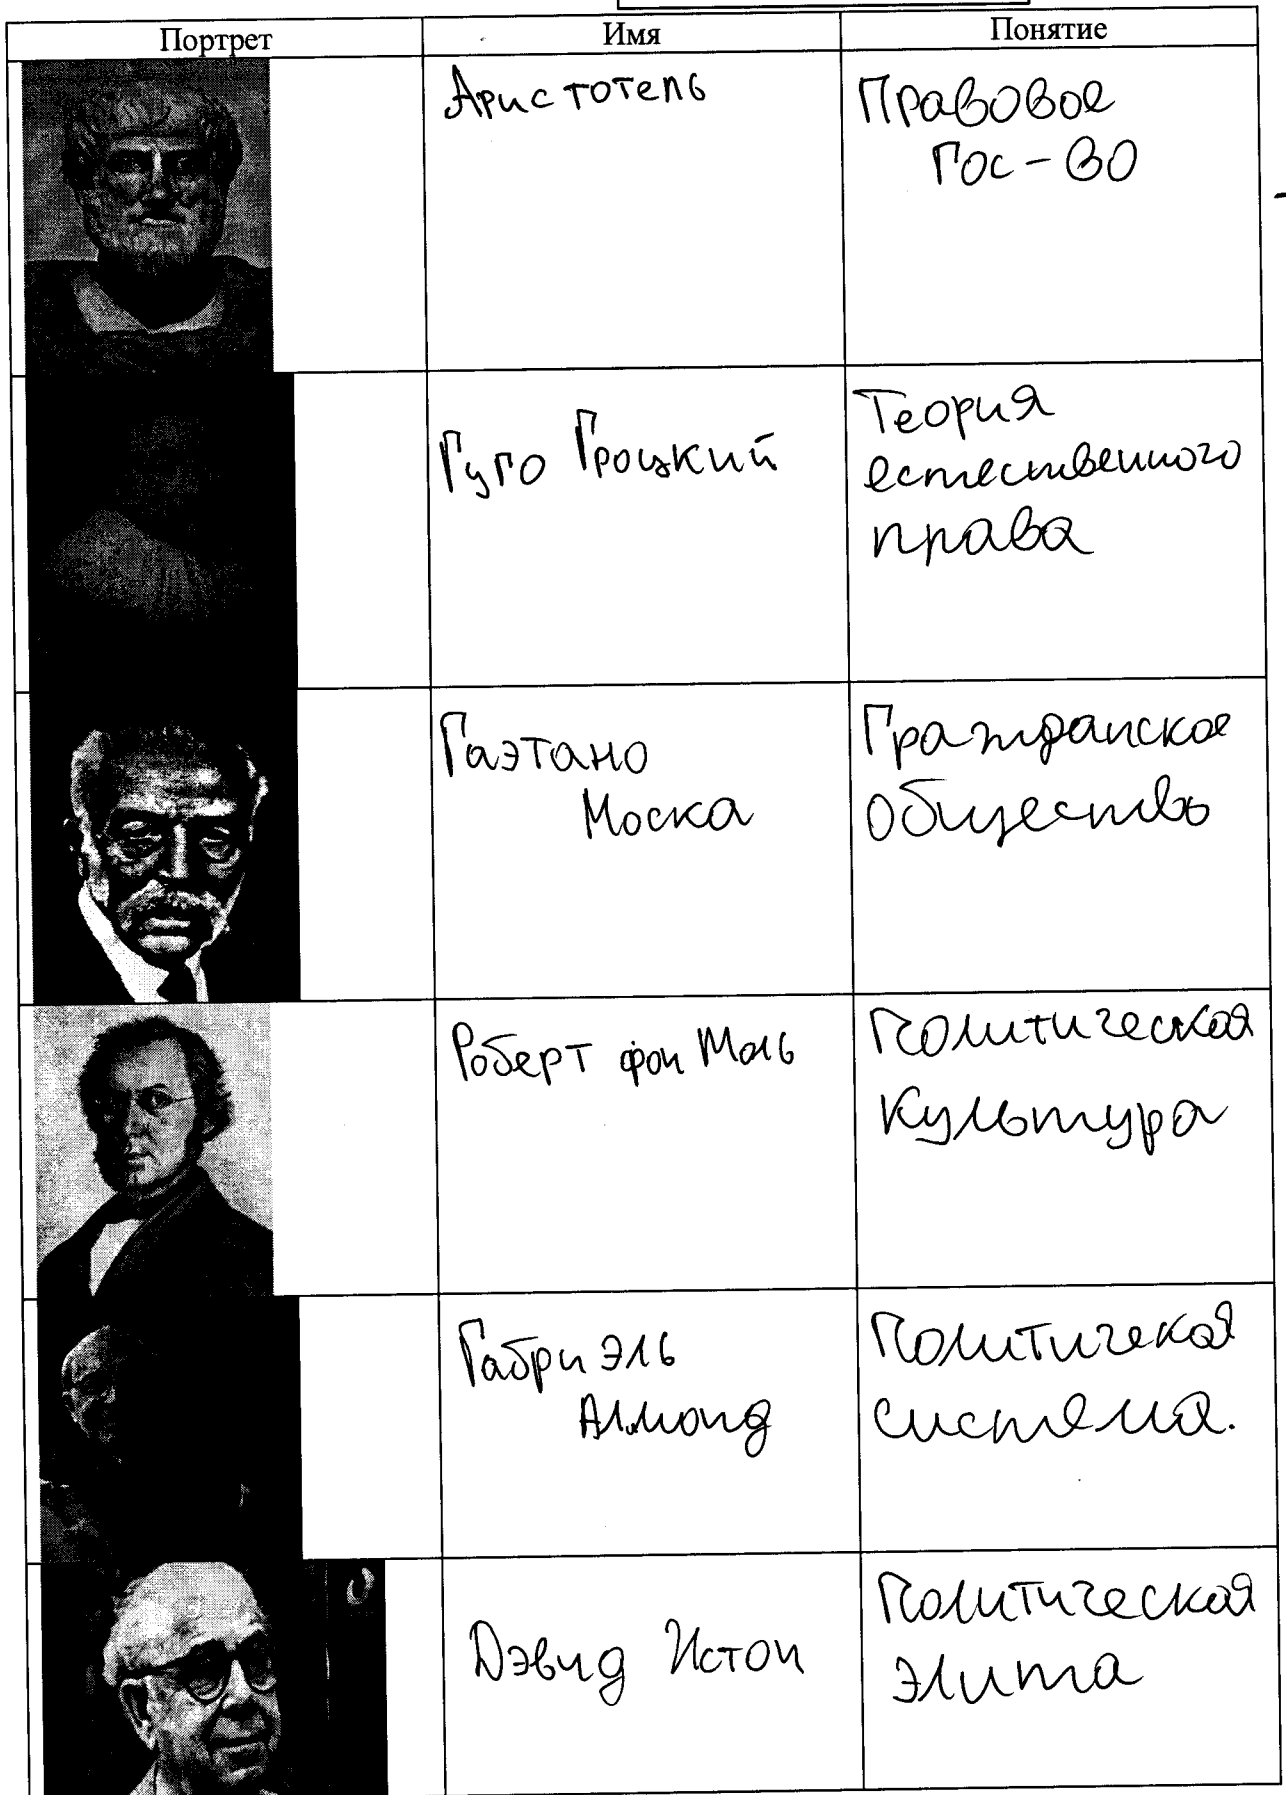 Портрет Имя Понятие
Аристотель
Правовое
Гос-во
Гуго Гроцкий
Теория
естественного
права
Гаэтано
Моска
Гражданское
Общество
Роберт фон Моль
Политическая
Культура
Габриэль
Алмонд
Политичекая
система.
Дэвид Истон
Политическая
элита